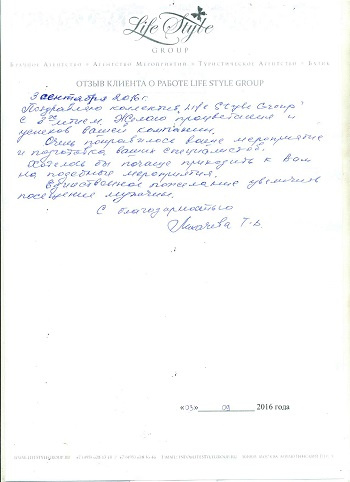 Life Style
GROUP
Брачное Агентство • Агентство Мероприятий • Туристическое Агентство • Бутик
ОТЗЫВ КЛИЕНТА О РАБОТЕ LIFE STYLE GROUP
3 сентября 2016 г.
Поздравляю коллектив „Life Style Group"
с летием. Желаю процветания и
успехов вашей компании.
Очень понравилось ваше мероприятие
и подготовка ваших специалистов.
Хотелось бы почаще приходить к Вам
на подобные мероприятия.
Единственное пожелание увеличить
посещение мужчин.
С благодарностью
Т. В.
«03» 09 2016 года